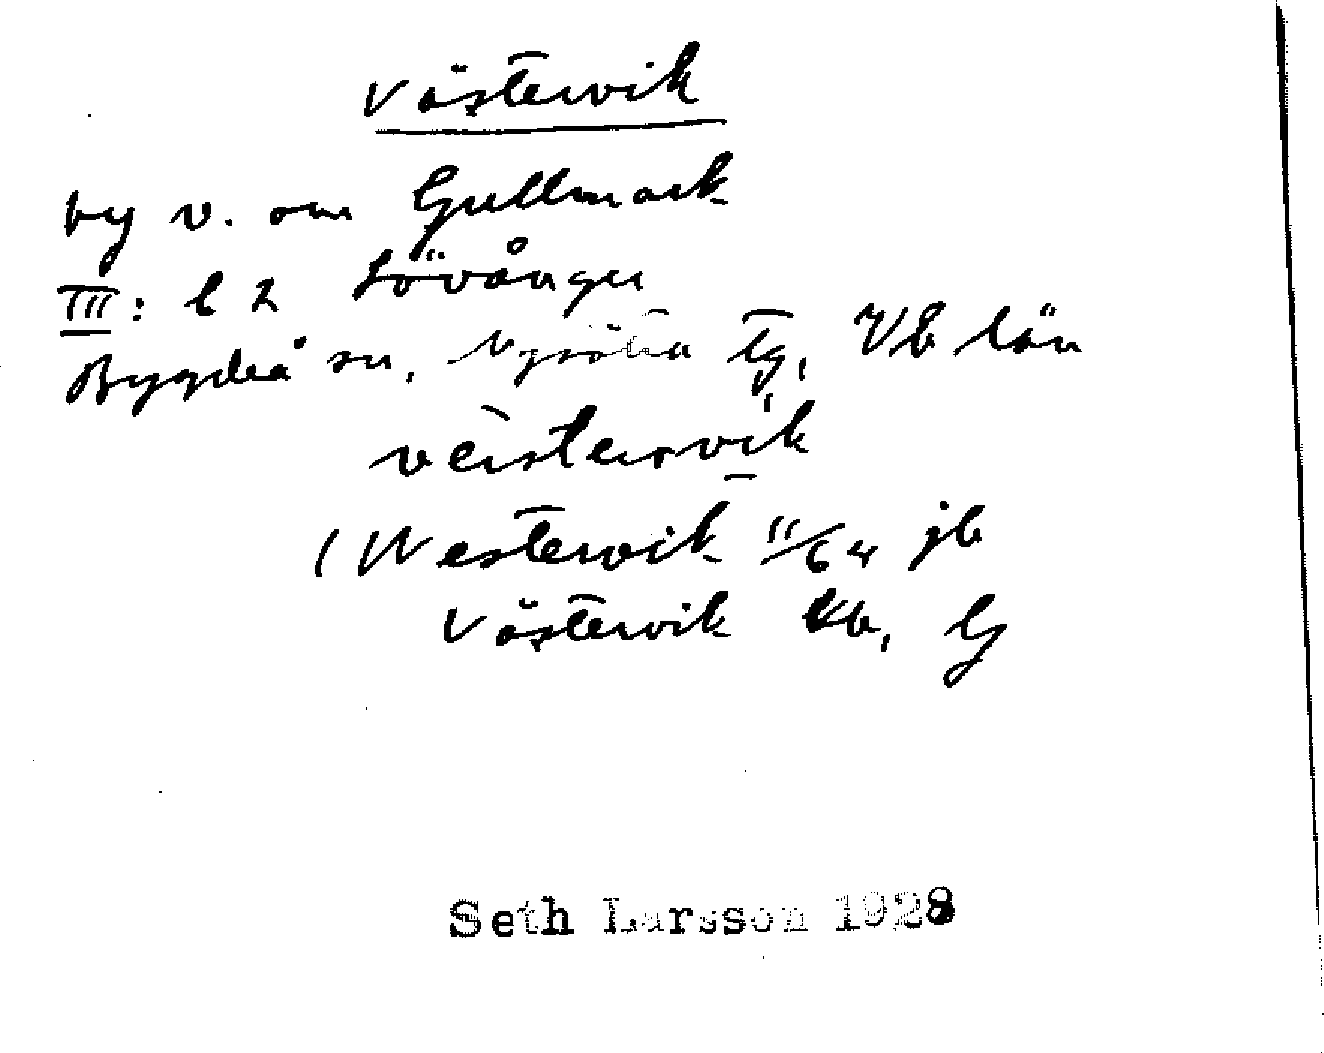 Västervik
by v. om Gullmark
III: b 2 Lövånger
Bygdeå sn, Nysätra tg, Vb län
veistervik
(Westervik 11/64 jb
Västervik kb, G
Seth Larsson 1928